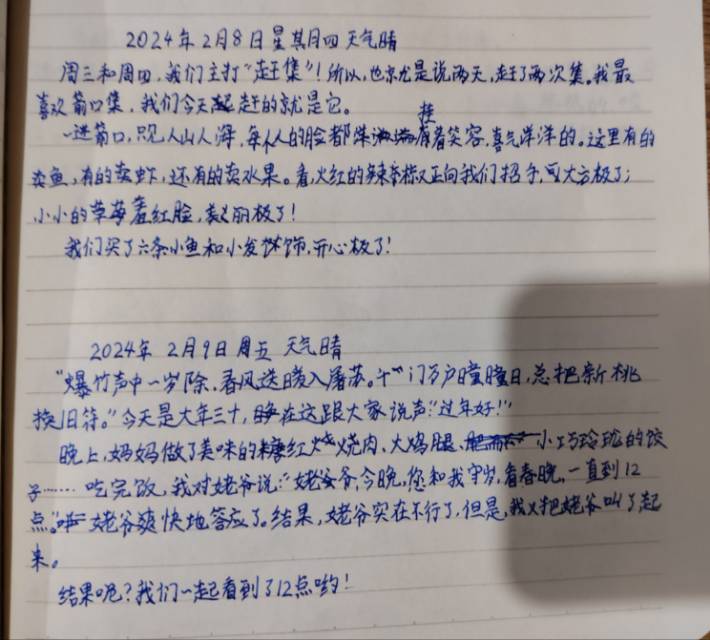 2024年2月8日星期四天气晴
周三和周四,我们主打"赶集"!所以,也就是说两天,赶了两次集。我最
喜欢莆口集,我们今天赶的就是它。
一进莆口,只见人山人海,每个人的脸都洋挂着笑容,喜气洋洋的。这里有的
卖鱼,有的卖虾,还有的卖水果。看,火红的辣椒正向我们招手,可大方极了;
小小的草莓羞红脸,美丽极了!
我们买了六条小鱼和小发饰,开心极了!
2024年2月9日周五 天气晴
"爆竹声中一岁除,春风送暖入屠苏。千门万户曈曈日,总把新桃
换旧符。"今天是大年三十,在这跟大家说声:"过年好!"
晚上,妈妈做了美味的红烧肉、火鸡腿、小巧玲珑的饺
子……吃完饭,我对姥爷说:"姥爷,今晚,您和我守岁,看春晚,一直到12
点。"姥爷爽快地答应了。结果,姥爷实在不行了,但是,我又把姥爷叫了起
来。
结果呢?我们一起看到了12点哟!